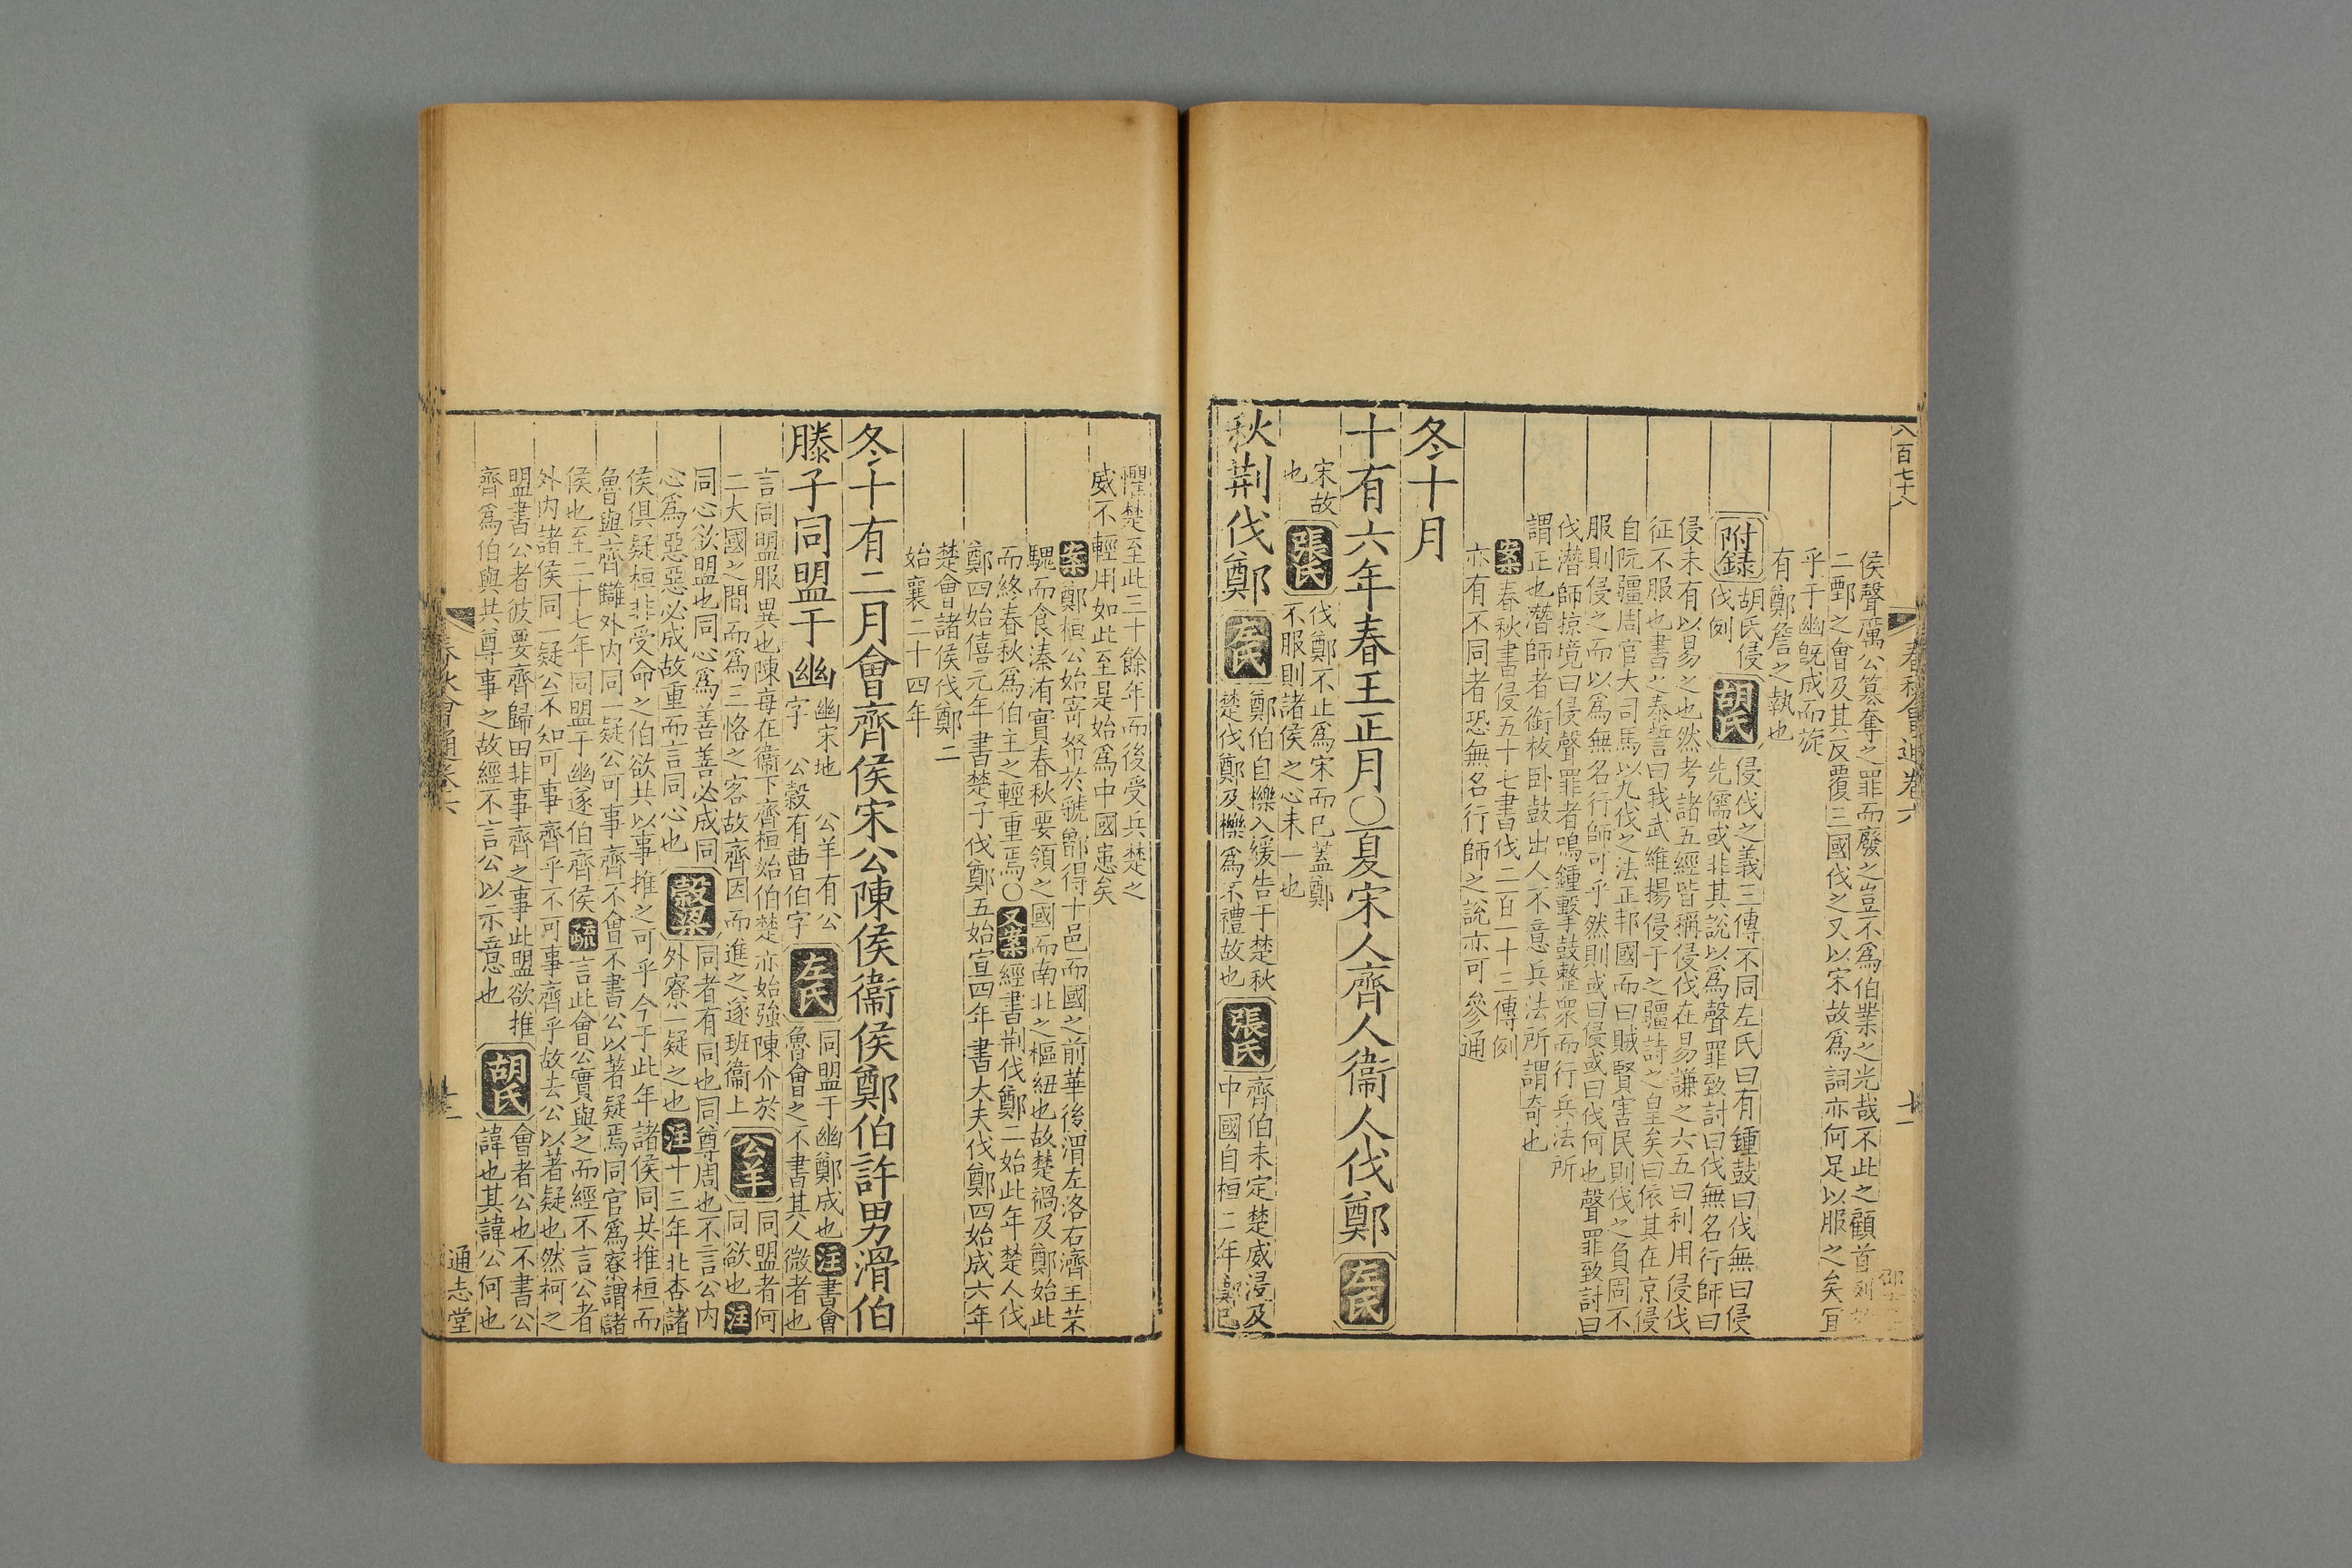 八百七十八
春秋會通卷六
十一
侯聲厲公篡奪之罪而廢之豈不為伯業之光哉不此之顧首列於
二鄄之會及其反覆三國伐之又以宋故為詞亦何足以服之矣宜
乎于幽旣成而旋
有鄭詹之執也
附録
胡氏侵
伐例
胡氏
侵伐之義三傳不同左氏曰有鍾鼓曰伐無曰侵
先儒或非其說以為聲罪致討曰伐無名行師曰
侵未有以易之也然考諸五經皆稱侵伐在易謙之六五曰利用侵伐
征不服也書之泰誓曰我武維揚侵于之疆詩之皇矣曰依其在京侵
自阮疆周官大司馬以九伐之法正邦國而曰賊賢害民則伐之負固不
服則侵之而以為無名行師可乎然則或曰侵或曰伐何也聲罪致討曰
伐潛師掠境曰侵聲罪者鳴鍾擊鼓整衆而行兵法所
謂正也潛師者銜枚卧鼓出人不意兵法所謂奇也
案
春秋書侵五十七書伐二百一十三傳例
亦有不同者恐無名行師之說亦可參通
冬十月
十有六年春王正月〇夏宋人齊人衞人伐鄭
左氏
宋故
也
張氏
伐鄭不止為宋而已蓋鄭
不服則諸侯之心未一也
秋荆伐鄭
左氏
鄭伯自櫟入緩告于楚秋
楚伐鄭及櫟爲不禮故也
張氏
齊伯未定楚威浸及
中國自桓二年鄭已
懼楚至此三十餘年而後受兵楚之
威不輕用如此至是始爲中國患矣
案
鄭桓公始寄帑於虢鄶得十邑而國之前華後渭左洛右濟主芣
騩而食溱洧實春秋要領之國而南北之樞紐也故楚禍及鄭始此
而終春秋爲伯主之輕重焉〇
又案
經書荆伐鄭二始此年楚人伐
鄭四始僖元年書楚子伐鄭五始宣四年書大夫伐鄭四始成六年
楚會諸侯伐鄭二
始襄二十四年
冬十有二月會齊侯宋公陳侯衞侯鄭伯許男滑伯
滕子同盟于幽
幽宋地
公羊有公
字
公穀有曹伯字
左氏
同盟于幽鄭成也
注
書會
魯會之不書其人微者也
言同盟服異也陳每在衞下齊桓始伯楚亦始強陳介於
二大國之間而爲三恪之客故齊因而進之遂班衞上
公羊
同盟者何
同欲也
注
同心欲盟也同心爲善善必成同
心爲惡惡必成故重而言同心也
穀梁
同者有同也同尊周也不言公内
外寮一疑之也
注
十三年北杏諸
侯俱疑桓非受命之伯欲共以事推之可乎今于此年諸侯同共推桓而
魯與齊讎外内同一疑公可事齊不會不書公以著疑焉同官爲寮謂諸
侯也至二十七年同盟于幽遂伯齊侯
疏
言此會公實與之而經不言公者
外内諸侯同一疑公不知可事齊乎不可事齊乎故去公以著疑也然柯之
盟書公者彼要齊歸田非事齊之事此盟欲推
齊爲伯與共尊事之故經不言公以示意也
胡氏
會者公也不書公
諱也其諱公何也
春秋會通卷六
十二
通志堂